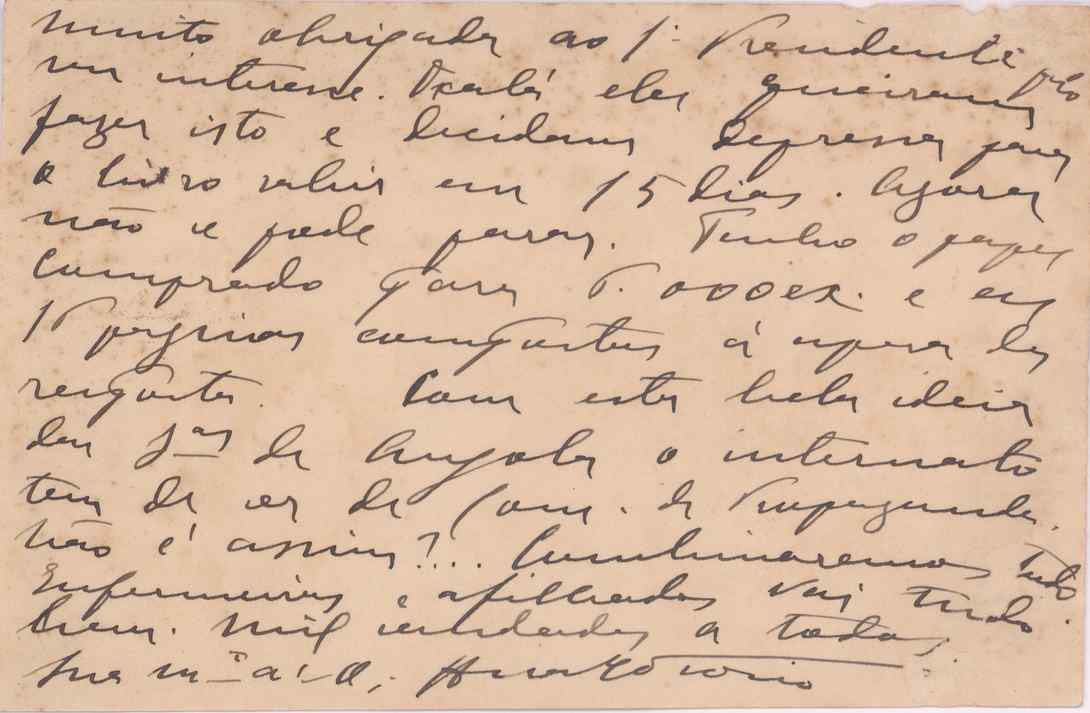 muito obrigada ao Sr. Presidente pelo
seu interesse. Oxalá eles queiram
fazer isto e decidam depressa para
o livro sahir em 15 dias. Agora
não se pode parar. Tenho o papel
comprado para ex. e
paginas compostas á espera da
resposta. Com esta bela ideia
das Sras de Angola o internato
tem de ser de Com. de Propaganda.
Não é assim?... Combinaremos tudo
Enfermeiras e afilhadas vai tudo
bem. Mil saudades a todas.
Sua mto a. O.